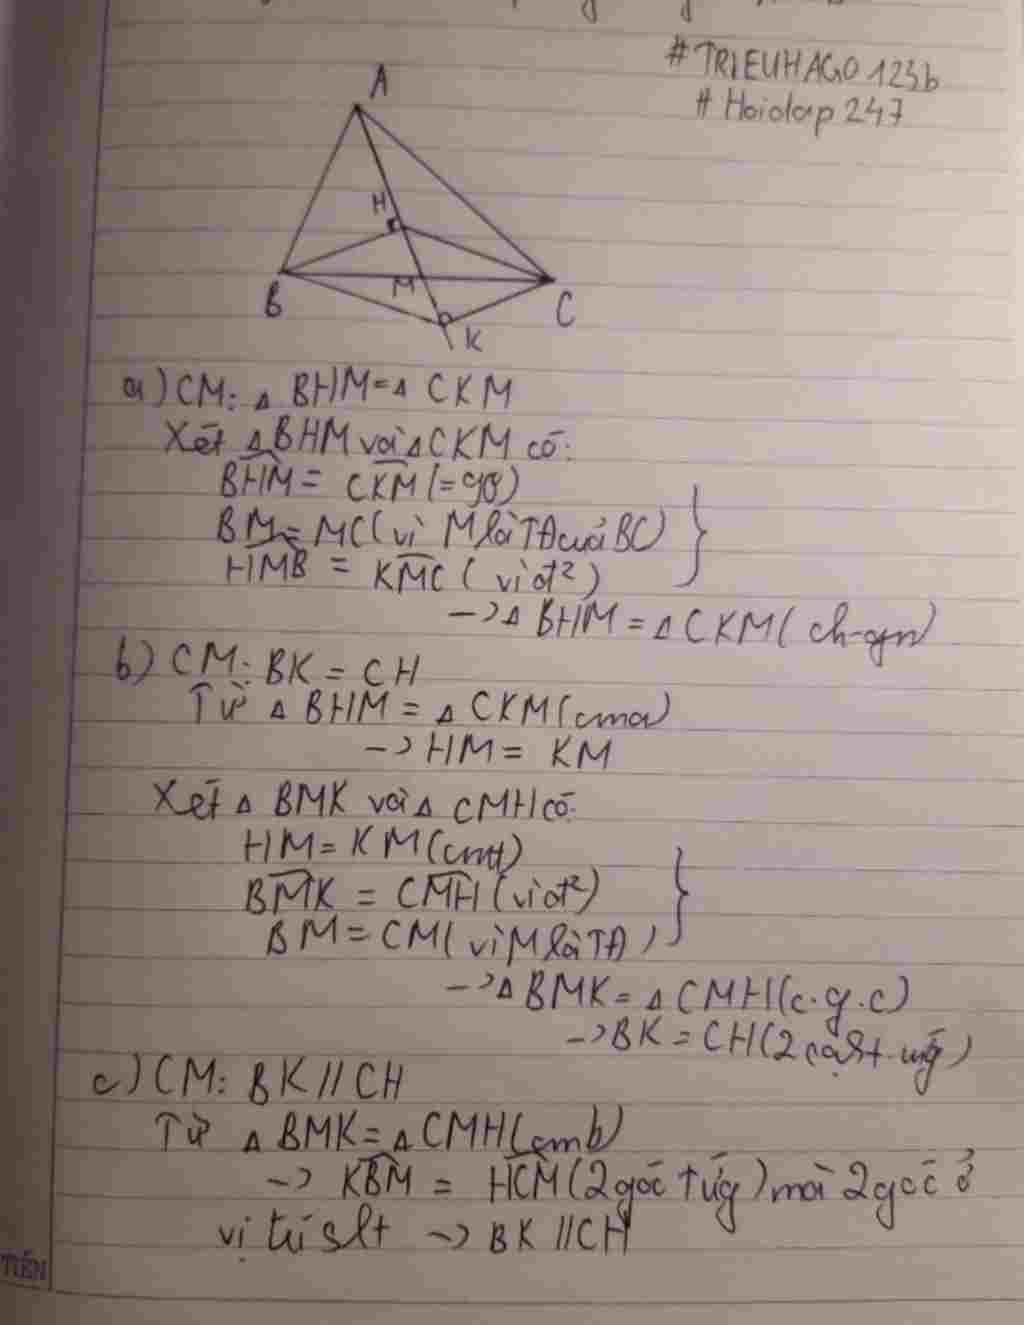 #TRIEUHAGO123b
# Hoidap 247
A
H
B
M
C
K
a) CM: △ BHM = △ CKM
Xét △BHM và △CKM có:
BHM = CKM (= 90)
BM = MC (vì M là TĐ của BC)
HMB = KMC ( vì đ²)
-> △ BHM = △ CKM ( ch-gn)
b) CM: BK = CH
Từ △ BHM = △ CKM (cma)
-> HM = KM
Xét △ BMK và △ CMH có:
HM = KM (cmt)
BMK = CMH (vì đ²)
BM = CM ( vì M là TĐ )
-> △ BMK = △ CMH (c.g.c)
-> BK = CH (2 cạh t.ứg)
c) CM: BK // CH
Từ △ BMK = △ CMH (cmb)
-> KBM = HCM (2 góc t ứg) mà 2 góc ở
vị trí slt -> BK // CH
TIẾN